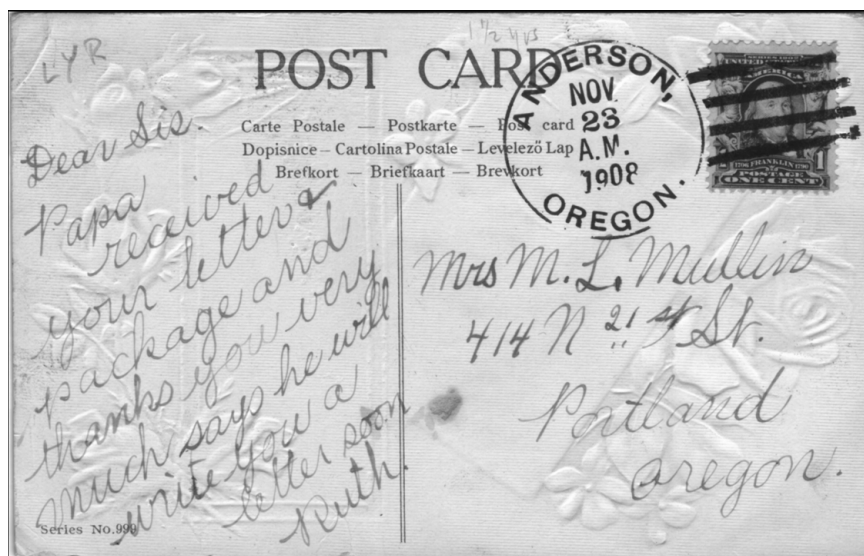 LYR
1 1/2 yrs
POST CARD
Carte Postale — Postkarte — Post card
Dopisnice – Cartolina Postale – Levelező Lap
Brefkort — Briefkaart — Brevkort
ANDERSON,
NOV
23
A.M.
1908
OREGON.
SERIES 1902
UNITED STATES OF
AMERICA
1706 FRANKLIN 1790
1
POSTAGE
ONE CENT
Dear Sis.
Papa
received
your letter &
package and
thanks you very
much says he will
write you a
letter soon
Ruth.
Mrs M. L. Mullin
414 N 21 st St.
Portland
Oregon.
Series No. 999